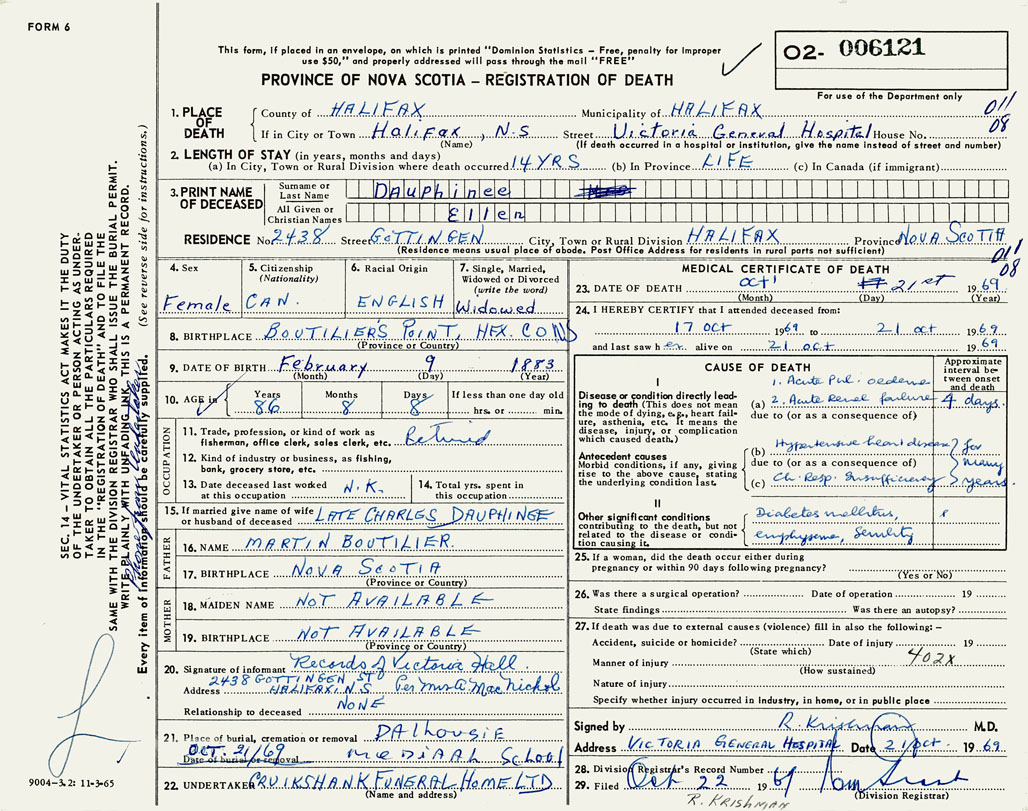 FORM 6
This form, if placed in an envelope, on which is printed "Dominion Statistics – Free, penalty for improper
use $50," and properly addressed will pass through the mail "FREE"
PROVINCE OF NOVA SCOTIA – REGISTRATION OF DEATH
02- 006121
For use of the Department only
011
08
1. PLACE OF DEATH
County of HALIFAX Municipality of HALIFAX
If in City or Town Halifax, N.S Street Victoria General Hospital House No.
(Name) (If death occurred in a hospital or institution, give the name instead of street and number)
2. LENGTH OF STAY (in years, months and days)
(a) In City, Town or Rural Division where death occurred 14 YRS (b) In Province LIFE (c) In Canada (if immigrant)
3. PRINT NAME OF DECEASED
Surname or Last Name DAuphinee
All Given or Christian Names Ellen
RESIDENCE No. 2438 Street GOTTINGEN City, Town or Rural Division HALIFAX Province NOVA SCOTIA
(Residence means usual place of abode. Post Office Address for residents in rural parts not sufficient)
011
08
4. Sex Female
5. Citizenship (Nationality) CAN.
6. Racial Origin ENGLISH
7. Single, Married, Widowed or Divorced (write the word) Widowed
8. BIRTHPLACE BOUTILIER'S POINT, HFX. CO NS
(Province or Country)
9. DATE OF BIRTH February 9 1883
(Month) (Day) (Year)
10. AGE in Years 86 Months 8 Days 8 If less than one day old
hrs. or min.
OCCUPATION
11. Trade, profession, or kind of work as
fisherman, office clerk, sales clerk, etc. Retired
12. Kind of industry or business, as fishing,
bank, grocery store, etc.
13. Date deceased last worked
at this occupation N.K.
14. Total yrs. spent in
this occupation
15. If married give name of wife
or husband of deceased LATE CHARLES DAUPHINEE
FATHER
16. NAME MARTIN BOUTILIER.
17. BIRTHPLACE NOVA SCOTIA
(Province or Country)
MOTHER
18. MAIDEN NAME NOT AVAILABLE
19. BIRTHPLACE NOT AVAILABLE
(Province or Country)
20. Signature of informant Records of Victoria Hall
Address 2438 GOTTINGEN ST
HALIFAX N.S Per Mrs A MacNichol
Relationship to deceased NONE
21. Place of burial, cremation or removal DAlhousie
OCT. 21/69 MeDiAAL School
Date of burial or removal
22. UNDERTAKER CRUIKSHANK FUNERAL HOME LTD
(Name and address)
MEDICAL CERTIFICATE OF DEATH
23. DATE OF DEATH oct 21st 1969
(Month) (Day) (Year)
24. I HEREBY CERTIFY that I attended deceased from:
17 oct 1969 to 21 oct 1969
and last saw her alive on 21 oct 1969
CAUSE OF DEATH
Approximate interval between onset and death
I
Disease or condition directly leading to death (This does not mean the mode of dying, e.g., heart failure, asthenia, etc. It means the disease, injury, or complication which caused death.)
1. Acute Pul. oedema
(a) 2. Acute Renal failure 4 days.
due to (or as a consequence of)
Antecedent causes
Morbid conditions, if any, giving rise to the above cause, stating the underlying condition last.
(b) Hypertensive heart disease for
due to (or as a consequence of) many
(c) Ch. Resp. Insufficiency years.
II
Other significant conditions contributing to the death, but not related to the disease or condition causing it.
Diabetes mellitus,
emphysema, Senility
25. If a woman, did the death occur either during
pregnancy or within 90 days following pregnancy?
(Yes or No)
26. Was there a surgical operation? Date of operation 19
State findings Was there an autopsy?
27. If death was due to external causes (violence) fill in also the following: –
Accident, suicide or homicide? Date of injury 19
(State which)
Manner of injury 402X
(How sustained)
Nature of injury
Specify whether injury occurred in industry, in home, or in public place
Signed by R. Krishnan M.D.
Address VICTORIA GENERAL HOSPITAL Date 21 oct 1969.
28. Division Registrar's Record Number
29. Filed Oct 22 1969
(Division Registrar)
R. KRISHMAN
SEC. 14 – VITAL STATISTICS ACT MAKES IT THE DUTY
OF THE UNDERTAKER OR PERSON ACTING AS UNDER-
TAKER TO OBTAIN ALL THE PARTICULARS REQUIRED
IN THE "REGISTRATION OF DEATH" AND TO FILE THE
SAME WITH THE DIVISION REGISTRAR WHO SHALL ISSUE THE BURIAL PERMIT.
WRITE PLAINLY WITH UNFADING INK. THIS IS A PERMANENT RECORD.
Every item of information should be carefully supplied. (See reverse side for instructions.)
9004-3.2: 11-3-65